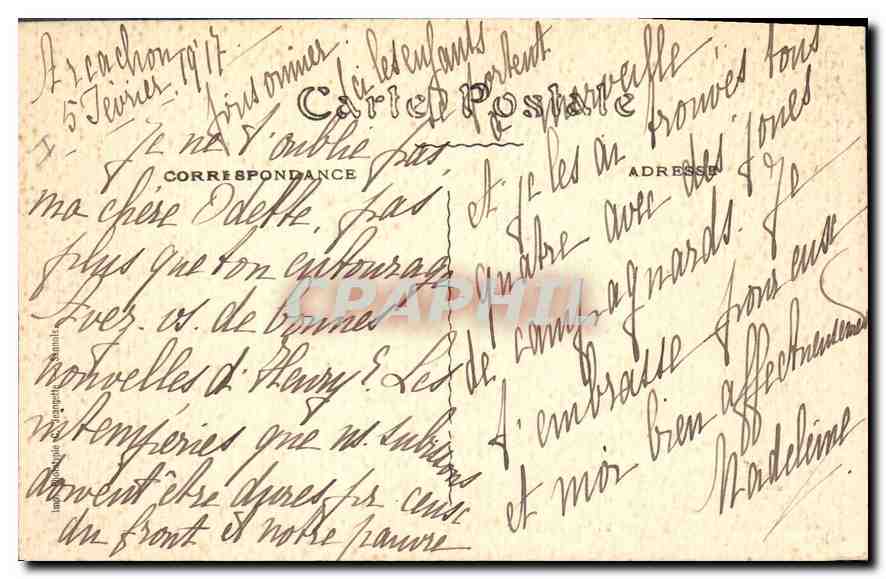 Arcachon
5 Février. 1917.
Carte Postale
CORRESPONDANCE
ADRESSE
Je ne t'oublie pas,
ma chère Odette, pas
plus que ton entourage
Avez-vs. de bonnes
nouvelles d'Henry? Les
intempéries que ns. subissons
doivent être dures pr. ceux
du front et notre pauvre
prisonnier.
Ici les enfants
se portent
à merveille
et je les ai trouvés tous
quatre avec des joues
de campagnards. Je
t'embrasse pour eux
et moi bien affectueusement
Madeleine
CPAPHIL